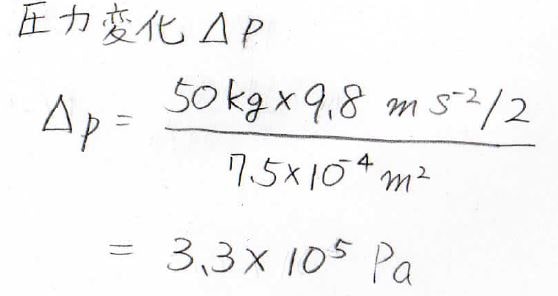 圧力変化 Δp
Δp = 50kg×9.8 m s⁻²/2
7.5×10⁻⁴ m²
= 3.3×10⁵ Pa